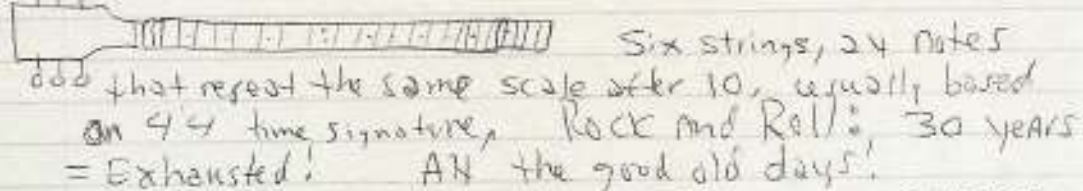 Six strings, 24 notes
that repeat the same scale after 10, usually based
on 4'4 time signature, Rock and Roll: 30 years
= Exhausted! AH the good old days!